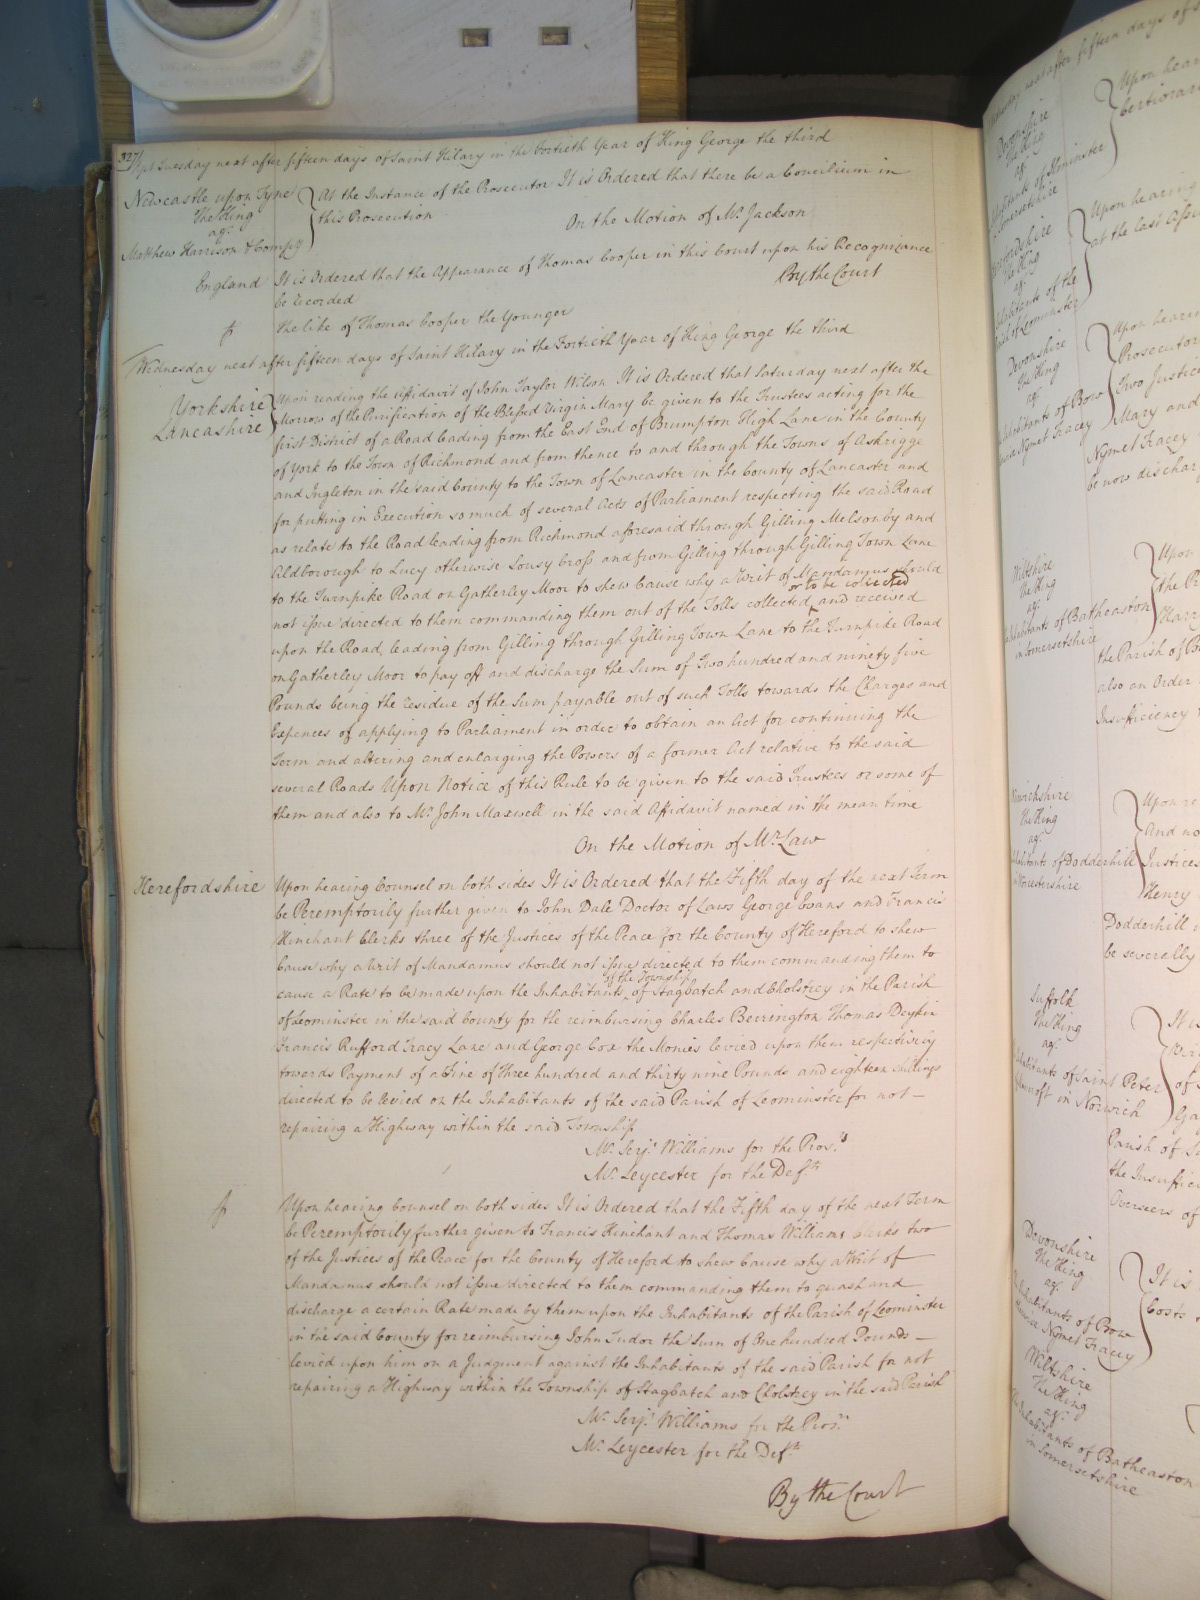 327/
Yet Tuesday next after fifteen days of Saint Hilary in the Fortieth Year of King George the third
Newcastle upon Tyne
The King
agt.
Matthew Harrison & Compy
At the Instance of the Prosecutor It is Ordered that there be a Concilium in
this Prosecution
On the Motion of Mr. Jackson
England
It is Ordered that the Appearance of Thomas Cooper in this Court upon his Recognizance
be recorded
By the Court
The like of Thomas Cooper the Younger
Wednesday next after fifteen days of Saint Hilary in the Fortieth Year of King George the third
Yorkshire
Lancashire
Upon reading the Affidavit of John Taylor Wilson It is Ordered that Saturday next after the
Morrow of the Purification of the Blessed Virgin Mary be given to the Trustees acting for the
first District of a Road leading from the East End of Brumpton High Lane in the County
of York to the Town of Richmond and from thence to and through the Towns of Askrigge
and Ingleton in the said County to the Town of Lancaster in the County of Lancaster and
for putting in Execution so much of several Acts of Parliament respecting the said Road
as relate to the Road leading from Richmond aforesaid through Gilling Melsonby and
Aldborough to Lucy otherwise Lousy Cross and from Gilling through Gilling Town Lane
to the Turnpike Road on Gatherley Moor to shew Cause why a Writ of Mandamus should
or to be collected
not issue directed to them commanding them out of the Tolls collected and received
upon the Road leading from Gilling through Gilling Town Lane to the Turnpike Road
on Gatherley Moor to pay off and discharge the Sum of Two hundred and ninety five
Pounds being the residue of the Sum payable out of such Tolls towards the Charges and
Expences of applying to Parliament in order to obtain an Act for continuing the
Term and altering and enlarging the Powers of a former Act relative to the said
several Roads Upon Notice of this Rule to be given to the said Trustees or some of
them and also to Mr. John Maxwell in the said Affidavit named in the mean time
On the Motion of Mr. Law
Herefordshire
Upon hearing Counsel on both sides It is Ordered that the Fifth day of the next Term
be Peremptorily further given to John Dale Doctor of Laws George Evans and Francis
Kinchant Clerks three of the Justices of the Peace for the County of Hereford to shew
Cause why a Writ of Mandamus should not issue directed to them commanding them to
of the Township
cause a Rate to be made upon the Inhabitants of Stagbatch and Cholstrey in the Parish
of Leominster in the said County for the reimbursing Charles Berrington Thomas Deykin
Francis Rufford Tracy Lane and George Cox the Monies levied upon them respectively
towards Payment of a Fine of Three hundred and thirty nine Pounds and eighteen shillings
directed to be levied on the Inhabitants of the said Parish of Leominster for not
repairing a Highway within the said Township
Mr. Serjt. Williams for the Pros.rs
Mr. Leycester for the Defts
Upon hearing Counsel on both sides It is Ordered that the Fifth day of the next Term
be Peremptorily further given to Francis Kinchant and Thomas Williams Clerks two
of the Justices of the Peace for the County of Hereford to shew Cause why a Writ of
Mandamus should not issue directed to them commanding them to quash and
discharge a certain Rate made by them upon the Inhabitants of the Parish of Leominster
in the said County for reimbursing John Tudor the Sum of One hundred Pounds
levied upon him on a Judgment against the Inhabitants of the said Parish for not
repairing a Highway within the Township of Stagbatch and Cholstrey in the said Parish
Mr. Serjt. Williams for the Pros.rs
Mr. Leycester for the Defts
By the Court
next after fifteen days of
Devonshire
The King
agt.
Inhabitants of Ilminster
Somersetshire
Upon hear
Certiorari
The King
agt.
Inhabitants of the
Parish of Leominster
Upon hearing
at the last Assi
Devonshire
The King
agt.
Inhabitants of Bow
Nymet Tracey
Upon hearin
Prosecutor
Two Justice
Mary and
Nymet Tracey
be now dischar
Wiltshire
The King
agt.
Inhabitants of Batheaston
in Somersetshire
Upon
the Pr
Harr
the Parish of B
also an Order
Insufficiency
The King
agt.
Inhabitants of Dodderhill
in Worcestershire
Upon re
And no
Justices
Henry
Dodderhill
be severally
Suffolk
The King
agt.
Inhabitants of Saint Peter
in Norwich
It is
of
Ga
Parish of
the Insuffici
Overseers of
Devonshire
The King
agt.
Inhabitants of Bow
Nymet Tracey
It is
Costs
Wiltshire
The King
agt.
Inhabitants of Batheaston
in Somersetshire